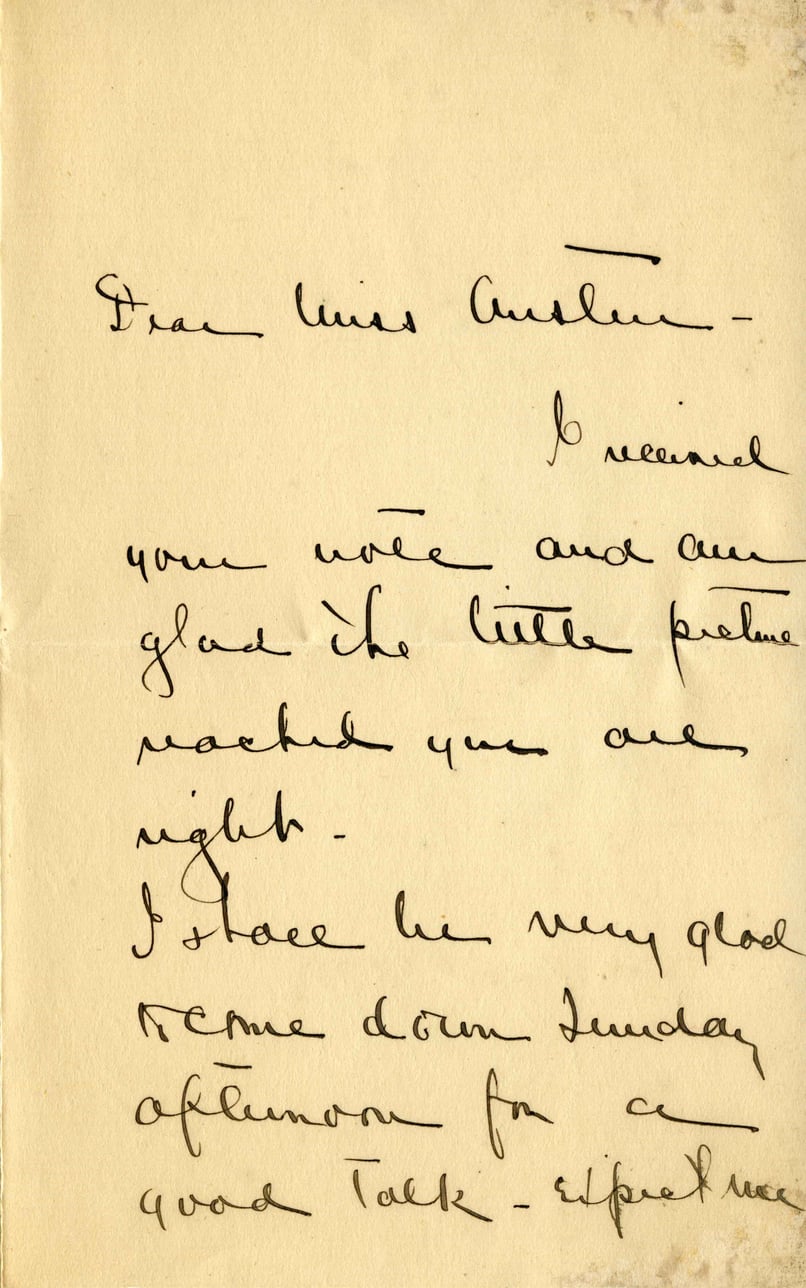 Dear Miss Austin -
I received
your note and am
glad the little picture
reached you all
right -
I shall be very glad
to come down Sunday
afternoon for a
good talk - expect me